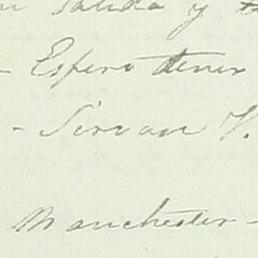 salida y
- Espero tener
- Sirvan V.
Manchester -